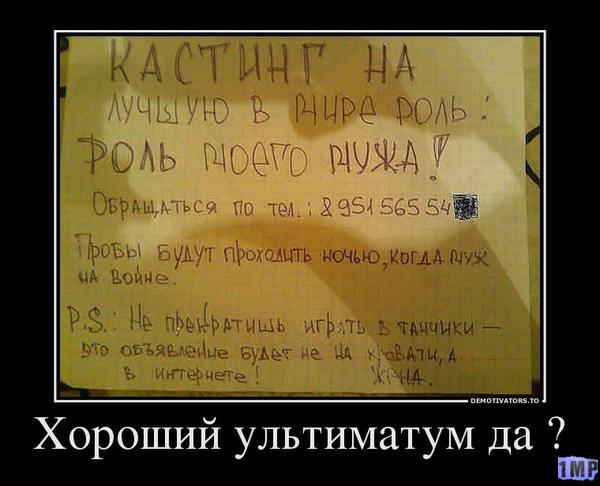 КАСТИНГ НА
ЛУЧШУЮ В МИРЕ РОЛЬ :
РОЛЬ МОЕГО МУЖА!
ОБРАЩАТЬСЯ ПО ТЕЛ.: 8 951 565 54
ПРОБЫ БУДУТ ПРОХОДИТЬ НОЧЬЮ, КОГДА МУЖ
НА ВОЙНЕ.
P.S.: НЕ ПРЕКРАТИШЬ ИГРАТЬ В ТАНЧИКИ —
ЭТО ОБЪЯВЛЕНИЕ БУДЕТ НЕ НА КРОВАТИ, А
В ИНТЕРНЕТЕ! ЖЕНА.
DEMOTIVATORS.TO
Хороший ультиматум да ?
1MP